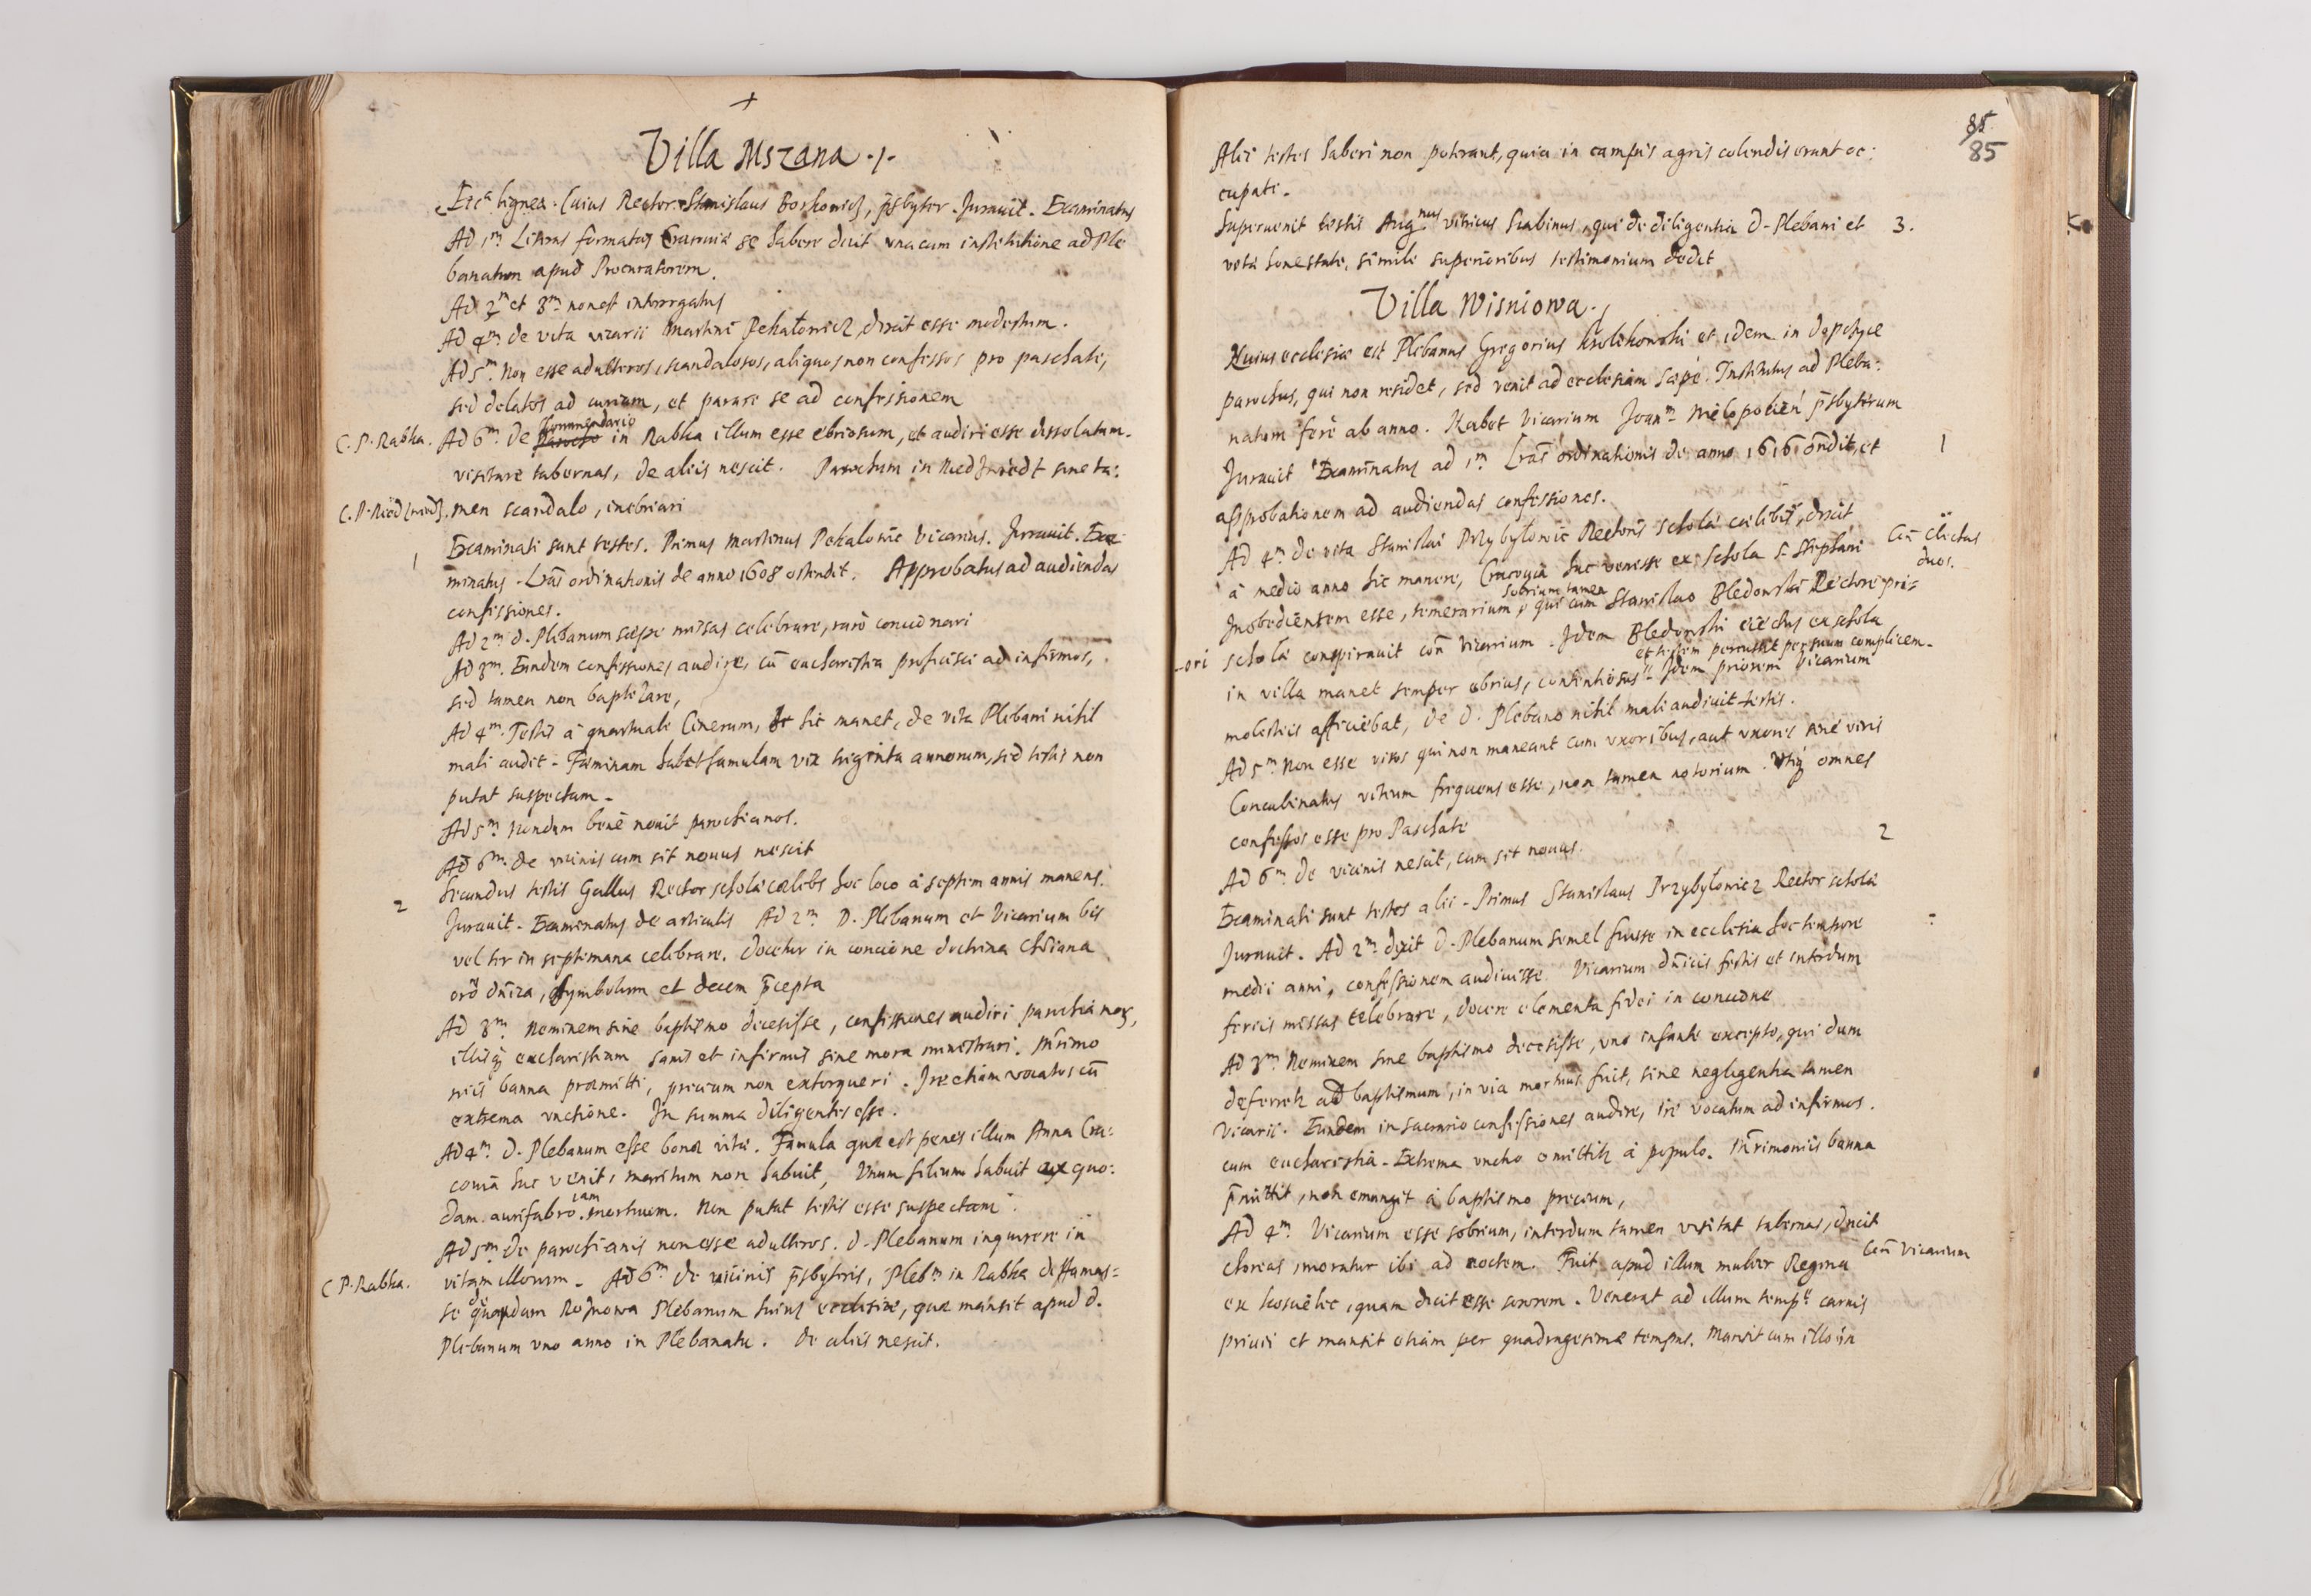 +
Villa Mszana
Eccᵃ lignea. Cuius Rector Stanislaus Borkowicz, p̄sbyter. Jurauit. Examinatus
Ad 1ᵐ Literas formatas Cracouiæ se habere dicit vna cum institutione ad Ple
banatum apud Procuratorem.
Ad 2ᵐ et 3ᵐ non est interrogatus
Ad 4ᵐ de vita vicarii Martini Pekalowicz, dicit esse modestum.
Ad 5ᵐ Non esse adulteros, scandalosos, aliquos non confessos pro paschate,
sed delatos ad curiam, et parare se ad confessionem
C. P. Rabka. Ad 6ᵐ de Commendario in Rabka illum esse ebriosum, et audiri esse dissolutum.
visitare tabernas, de aliis nescit. Parochum in sine ta:
men scandalo, inebriari
1 Examinati sunt testes. Primus Martinus Pekalowic Vicarius. Jurauit. Exa
minatus. Lrās ordinationis de anno 1608 ostendit. Approbatus ad audiendas
confessiones.
Ad 2ᵐ D. Plebanum sæpe missas celebrare, rarò concionari
Ad 3ᵐ. Eundem confessiones audire, cū eucharistia proficisci ad infirmos,
sed tamen non baptizare,
Ad 4ᵐ. Testis à quartuale Cinerum, hic manet, de vita Plebani nihil
mali audit. Fæminam habet famulam vix triginta annorum, sed testis non
putat suspectam.
Ad 5ᵐ. Nondum benè nouit parochianos.
Ad 6ᵐ. de vicinis cum sit nouus nescit
2 Secundus testis Gallus Rector scholæ cælebs hoc loco à septem annis manens.
Jurauit. Examinatus de articulis Ad 2ᵐ D. Plebanum et Vicarium bis
vel ter in septimana celebrare. Docetur in concione doctrina Chr̄iana
orō dn̄ica, symbolum et decem p̄cepta
Ad 3ᵐ Neminem sine baptismo decesisse, confessiones audiri
eucharistiam sanis et infirmis sine mora ministrari. Mr̄imo
niis banna præmitti, precium non extorqueri. Ire etiam vocatos cū
extrema vnctione. In summa diligentes esse.
Ad 4ᵐ. D. Plebanum esse bonæ vitæ. Famula quæ est penes illum Anna Cra:
couiâ huc venit, maritum non habuit, Vnum filium habuit ex quo:
dam aurifabro iam mortuum. Non putat testis esse suspectam.
Ad 5ᵐ de parochianis non esse adulteros. D. Plebanum inquirere in
C P. Rabka. vitam illorum. Ad 6ᵐ de vicinis p̄sbyteris, Plebᵐ in Rabka diffamas=
se Plebanum huius ecclesiæ, quæ mansit apud D.
Plebanum vno anno in Plebanatu. De aliis nescit.
85
85
Alii testes haberi non poterant, quia in campis agris colendis erant oc:
cupati.
Superuenit testis Augⁿᵘˢ vitricus Scabinus, qui de diligentia D. Plebani et 3.
vitæ honestate, simile superioribus testimonium dedit
Villa Wisniowa
Huius ecclesiæ est Plebanus Gregorius et idem in Dopchyce
parochus, qui non residet, sed venit ad ecclesiam sæpè. Institutus ad Pleba:
natum ferè ab anno. Habet Vicarium Joanᵐ p̄sbyterum
Jurauit Examinatus ad 1ᵐ Lrās ordinationis de anno 1616 on̄dit, et 1
approbationem ad audiendas confessiones.
Ad 4ᵐ de vita Stanislai Przybylowic Rectoris scholæ cælibis, dicit
à medio anno hic manere, Cracouiâ huc venisse ex schola S. Stephani
Inobedientem esse, temerarium, sobrium tamen qui cum Stanislao Bledowski Rectore pri=
ori scholæ conspirauit con̄ Vicarium. Idem Bledowski eiectus ex schola
in villa manet semper ebrius, contentiosus et testem percussit per suum complicem. Idem priorem Vicarium
molestiis afficiebat, de D. Plebano nihil mali audiuit testis.
Ad 5ᵐ Non esse viros qui non maneant cum vxoribus, aut vxores sine viris
Concubinatus vitium frequens esse, non tamen notorium. omnes
confessos esse pro Paschate
Ad 6ᵐ de vicinis nescit, cum sit nouus. 2
Examinati sunt testes alii. Primus Stanislaus Przybylowicz Rector scholæ
Jurauit. Ad 2ᵐ dixit D. Plebanum semel fuisse in ecclesia hoc tempore
medii anni, confessionem audiuisse. Vicarium dn̄icis festis et interdum
feriis missas celebrare, docere elementa fidei in concione
Ad 3ᵐ Neminem sine baptismo decesisse, vno infante excepto, qui dum
deferretr ad baptismum, in via mortuus fuit, sine negligentia tamen
Vicarii. Eundem in sacrario confessiones audire, ire vocatum ad infirmos.
cum eucharistia. Extrema vnctio omittitr à populo. Mr̄imoniis banna
p̄mittit, non emungit à baptismo precium,
Ad 4ᵐ Vicarium esse sobrium, interdum tamen visitat tabernas, ducit
choreas, moratur ibi ad noctem. Fuit apud illum mulier Regina Con̄ Vicarium
ex quam dicit esse sororem. Venerat ad illum tempᵉ carnis
priuii et mansit etiam per quadragesimæ tempus. Mansit cum illo in